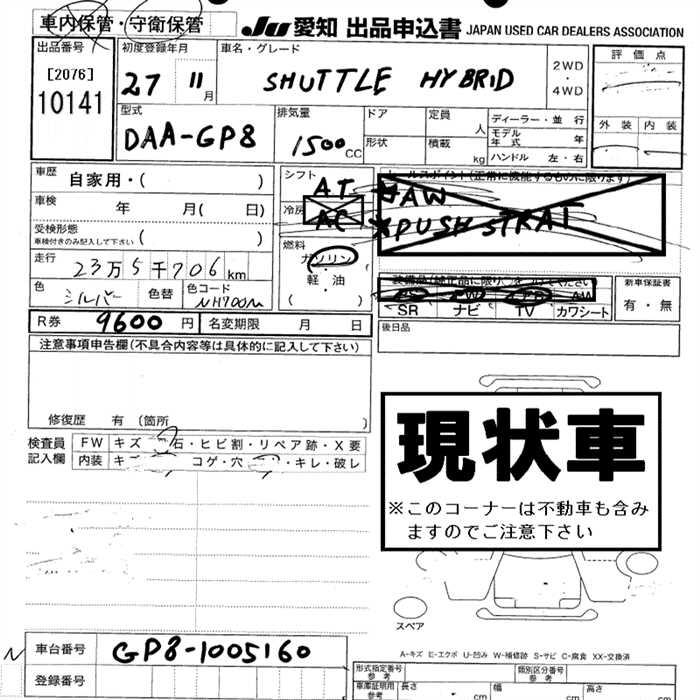 車内保管・守衛保管
JU 愛知 出品申込書 JAPAN USED CAR DEALERS ASSOCIATION
出品番号 初度登録年月 車名・グレード 評価点
[2076] 27 11月 SHUTTLE HYBRID 2WD・4WD
10141
型式 排気量 ドア 定員 人 ディーラー・並行 外装 内装
DAA-GP8 1500 CC 形状 積載 kg モデル年式 年
ハンドル 左・右
車歴 自家用・( ) シフト AT セールスポイント(正常に機能するものに限ります)
AW
車検 年 月( 日) 冷房 AC PUSH STRAT
受検形態 車検付きのみ記入して下さい ( ) 燃料 ガソリン
走行 23万5千706km 軽・油
・( )
新車保証書
色 シルバー 色替 色コード NH700M 有・無
SR ナビ TV カワシート
R券 9600円 名変期限 月 日 後日品
注意事項申告欄(不具合内容等は具体的に記入して下さい)
修復歴 有(箇所 )
現状車
※このコーナーは不動車も含みますのでご注意下さい
検査員記入欄 FW キズ 石・ヒビ割・リペア跡・X要
内装 コゲ・穴・キレ・破レ
スペア
A-キズ E-エクボ U-凹み W-補修跡 S-サビ C-腐食 XX-交換済
N 車台番号 GP8-1005160
登録番号
形式指定番号 参考 類別区分番号 参考
車庫証明用 参考 長さ cm 幅 cm 高さ cm